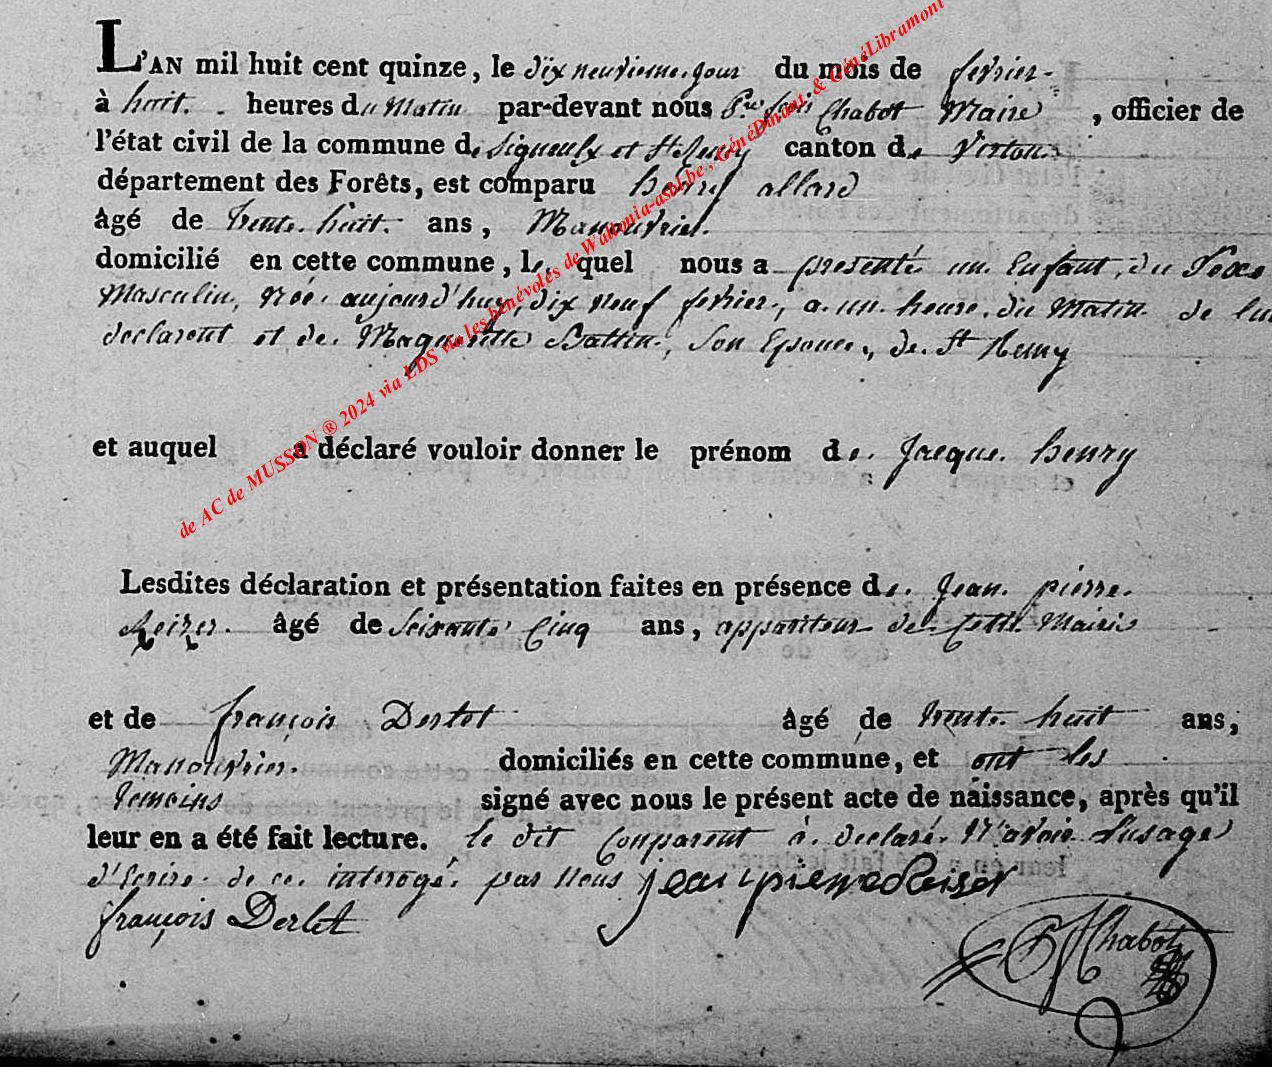 L'AN mil huit cent quinze, le dix neuvieme jour du mois de fevrier
à huit heures du Matin par-devant nous Chabot Maire, officier de
l'état civil de la commune de Signeulx et St Remy canton de Virton
département des Forêts, est comparu henry allard
âgé de trente huit ans, Manouvrier
domicilié en cette commune, le quel nous a presenté un Enfant, du Sexe
Masculin, Née aujourd'huy, dix neuf fevrier, a un heure du Matin de lui
declarent et de Marguerite Battin, Son Epouse, de St Remy
et auquel a déclaré vouloir donner le prénom de Jacque henry
Lesdites déclaration et présentation faites en présence de Jean pierre
âgé de Soixante Cinq ans, appariteur de Cette Mairie
et de françois Derlet âgé de trente huit ans,
Manouvrier domiciliés en cette commune, et ont les
temoins signé avec nous le présent acte de naissance, après qu'il
leur en a été fait lecture. le dit Comparent à declaré N'avoir l'usage
d'Ecrire de ce interogé par Nous jean pierre
françois Derlet Chabot
de AC de MUSSON ® 2024 via LDS via les bénévoles de Wallonia-asbl.be, GénéDinant, & GénéLibramont